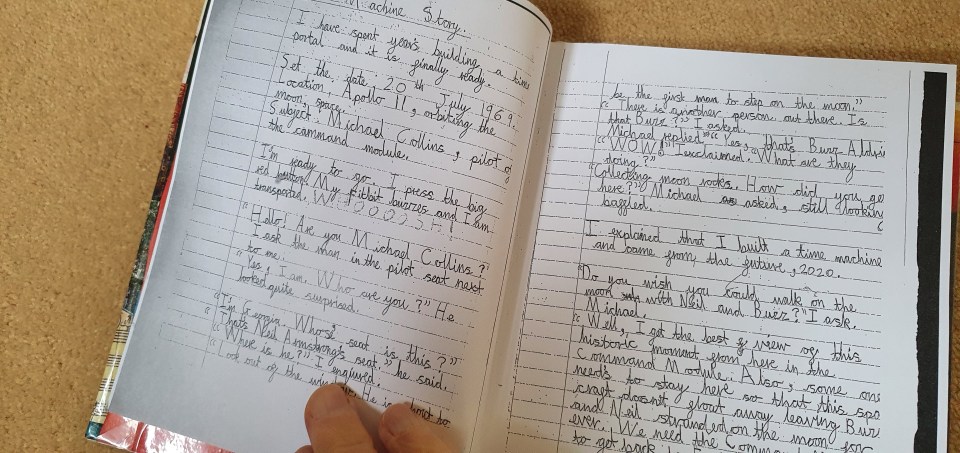 Machine Story.
I have spent years building a time
portal and it is finally ready.
Set the date 20th July 1969.
Location: Apollo 11, orbiting the
moon, space.
Subject: Michael Collins, pilot of
the command module.
I'm ready to go. I press the big
red button. My Fitbit buzzes and I am
transported.
"Hello! Are you Michael Collins?"
I ask the man in the pilot seat next
to me.
"Yes, I am. Who are you?" He
looked quite surprised.
"I'm Georgia. Whose seat is this?"
"Thats Neil Armstrong's seat," he said.
"Where is he?" I enquired.
"Look out of the He is about to
be the first man to step on the moon."
"There is another person out there. Is
that Buzz?" I asked.
Michael replied "Yes, that's Buzz Aldrin
"WOW!" I exclaimed. "What are they
doing?"
"Collecting moon rocks. How did you ge
here?" Michael asked, still looking
baffled.
I explained that I built a time machine
and came from the future, 2020.
"Do you wish you could walk on the
moon with Neil and Buzz?" I ask.
Michael.
"Well, I get the best of view of this
historic moment from here in the
Command Module. Also, some one
needs to stay here so that this spa
craft doesn't float away leaving Buzz
and Neil stranded on the moon for
ever. We need the Comman
to get back